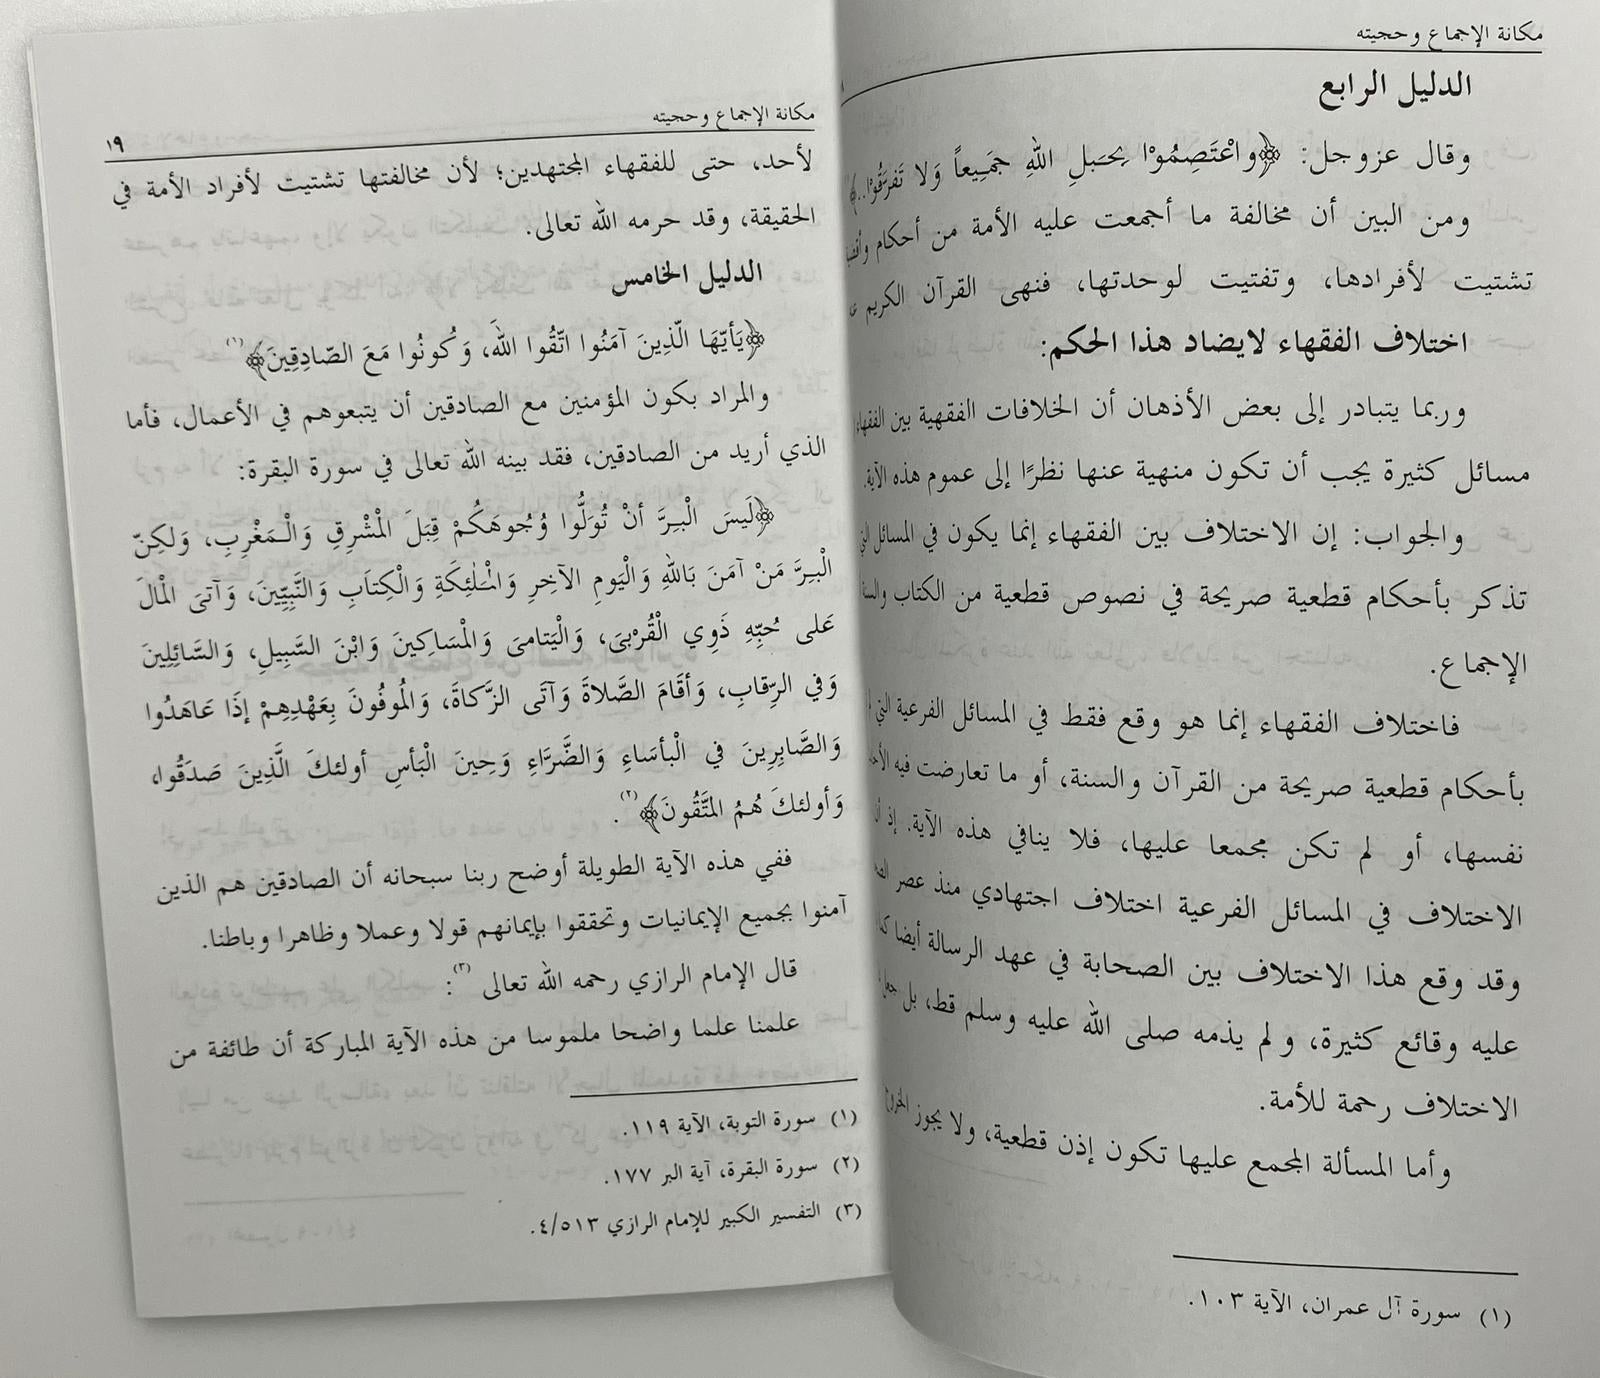 مكانة الإجماع وحجيته
الدليل الرابع
وقال عزوجل: ﴿واعْتَصِمُوْا بِحَبلِ اللهِ جَمَيِعاً وَلا تَفرَّقُوْا..﴾
ومن البين أن مخالفة ما أجمعت عليه الأمة من أحكام
تشتيت لأفرادها، وتفتيت لوحدتها، فنهى القرآن الكريم
اختلاف الفقهاء لايضاد هذا الحكم:
وربما يتبادر إلى بعض الأذهان أن الخلافات الفقهية بين الفقهاء
مسائل كثيرة يجب أن تكون منهية عنها نظرًا إلى عموم هذه الآية.
والجواب: إن الاختلاف بين الفقهاء إنما يكون في المسائل
تذكر بأحكام قطعية صريحة في نصوص قطعية من الكتاب والسنة
الإجماع.
فاختلاف الفقهاء إنما هو وقع فقط في المسائل الفرعية التي
بأحكام قطعية صريحة من القرآن والسنة، أو ما تعارضت فيه
نفسها، أو لم تكن مجمعا عليها، فلا ينافي هذه الآية. إذ
الاختلاف في المسائل الفرعية اختلاف اجتهادي منذ عصر
وقد وقع هذا الاختلاف بين الصحابة في عهد الرسالة أيضا
عليه وقائع كثيرة، ولم يذمه صلى الله عليه وسلم قط، بل جعل
الاختلاف رحمة للأمة.
وأما المسألة المجمع عليها تكون إذن قطعية، ولا يجوز الخروج
(١) سورة آل عمران، الآية ١٠٣.
مكانة الإجماع وحجيته
١٩
لأحد، حتى للفقهاء المجتهدين؛ لأن مخالفتها تشتيت لأفراد الأمة في
الحقيقة، وقد حرمه الله تعالى.
الدليل الخامس
﴿يَأيّهَا الّذِينَ آمَنُوا اتّقُوا اللهَ، وَكُونُوا مَعَ الصّادِقِينَ﴾(١)
والمراد بكون المؤمنين مع الصادقين أن يتبعوهم في الأعمال، فأما
الذي أريد من الصادقين، فقد بينه الله تعالى في سورة البقرة:
﴿لَيسَ الْبِرَّ أنْ تُوَلُّوا وُجُوهَكُمْ قِبَلَ الْمَشْرِقِ وَالْمَغْرِبِ، وَلكِنّ
الْبِرَّ مَنْ آمَنَ بَاللهِ وَالْيَومِ الآخِرِ وَالْمَلٰئِكَةِ وَالْكِتاَبِ وَالنَّبِيّينَ، وَآتىَ الْمَالَ
عَلى حُبِّهِ ذَوِي الْقُرْبىَ، وَالْيَتامىَ وَالْمَسَاكِينَ وَابْنَ السَّبِيلِ، وَالسَّائِلِينَ
وَفي الرِّقابِ، وَأقَامَ الصَّلاةَ وَآتَى الزَّكاةَ، وَالْموُفُونَ بِعَهْدِهِمْ إذَا عَاهَدُوا
وَالصَّابِرِينَ في الْبأسَاءِ وَالضَّرَّاءِ وَحِينَ الْبَأسِ أولئكَ الَّذِينَ صَدَقُوا،
وَأولئكَ هُمُ المتَّقُونَ﴾(٢).
ففي هذه الآية الطويلة أوضح ربنا سبحانه أن الصادقين هم الذين
آمنوا بجميع الإيمانيات وتحققوا بإيمانهم قولا وعملا وظاهرا وباطنا.
قال الإمام الرازي رحمه الله تعالى (٣):
علمنا علما واضحا ملموسا من هذه الآية المباركة أن طائفة من
(١) سورة التوبة، الآية ١١٩.
(٢) سورة البقرة، آية البر ١٧٧.
(٣) التفسير الكبير للإمام الرازي ٤/٥١٣.